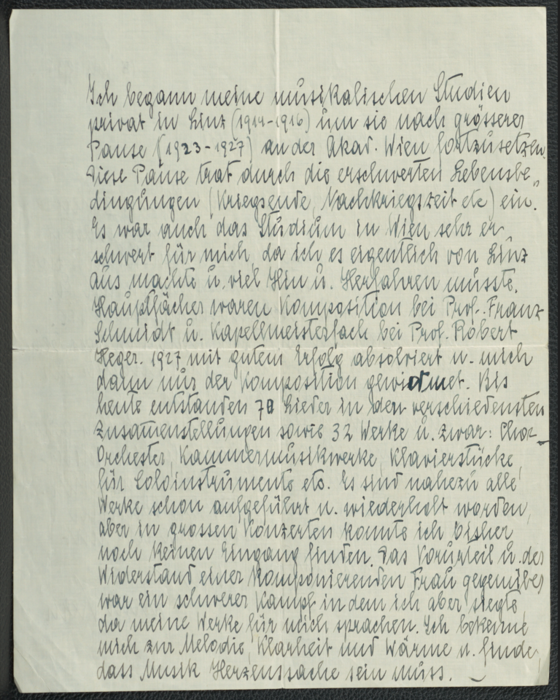 Ich begann meine musikalischen Studien
privat in Linz (1914-1916) um sie nach grösserer
Pause (1923-1927) an der Akad. Wien fortzusetzen.
Diese Pause trat durch die erschwerten Lebensbe-
dingungen (Kriegsende, Nachkriegszeit etc) ein.
Es war auch das Studium in Wien sehr er-
schwert für mich, da ich es eigentlich von Linz
aus machte u. viel Hin u. Herfahren musste.
Hauptfächer waren Komposition bei Prof. Franz
Schmidt u. Kapellmeisterfach bei Prof. Robert
Heger. 1927 mit gutem Erfolg absolviert u. mich
dann nur der Komposition gewidmet. Bis
heute entstanden 70 Lieder in den verschiedensten
Zusammenstellungen sowie 32 Werke u. zwar: Chor-
Orchester, Kammermusikwerke, Klavierstücke
für Soloinstrumente etc. Es sind nahezu alle
Werke schon aufgeführt u. wiederholt worden,
aber in grossen Konzerten konnte ich bisher
noch keinen Eingang finden. Das Vorurteil u. der
Widerstand einer komponierenden Frau gegenüber
war ein schwerer Kampf in dem ich aber siegte,
da meine Werke für mich sprachen. Ich bekenne
mich zur Melodie, Klarheit und Wärme u. finde,
dass Musik Herzenssache sein muss.